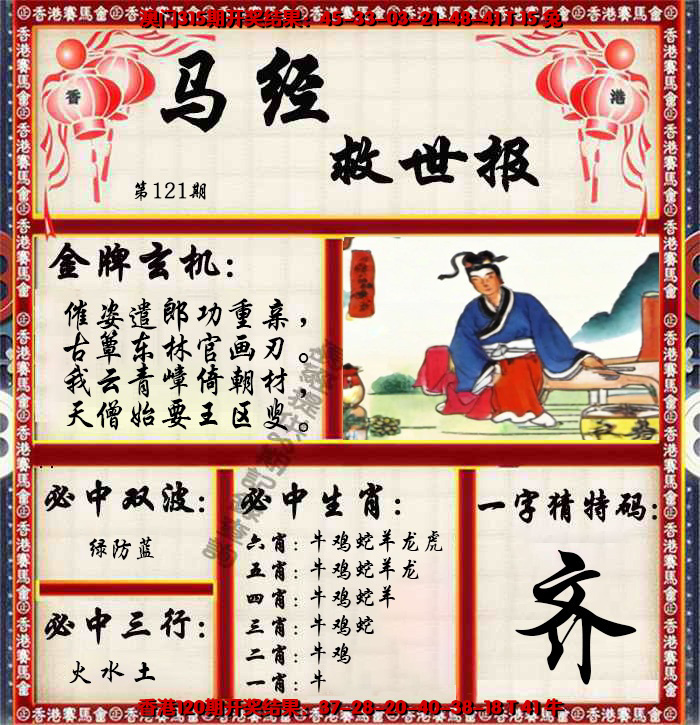 澳门315期开奖结果：45-33-03-21-48-41 T 15 兔
香 港
马经
救世报
第121期
金牌玄机：
催姿遣郎功重亲，
古蕈东林官画刃。
我云青嶂倚朝材，
天僧始要王区叟。
必中双波：
绿防蓝
必中三行：
火水土
必中生肖：
六肖：牛鸡蛇羊龙虎
五肖：牛鸡蛇羊龙
四肖：牛鸡蛇羊
三肖：牛鸡蛇
二肖：牛鸡
一肖：牛
一字猜特码：
齐
香港120期开奖结果：37-28-20-40-38-18 T 41 牛
香港賽馬會